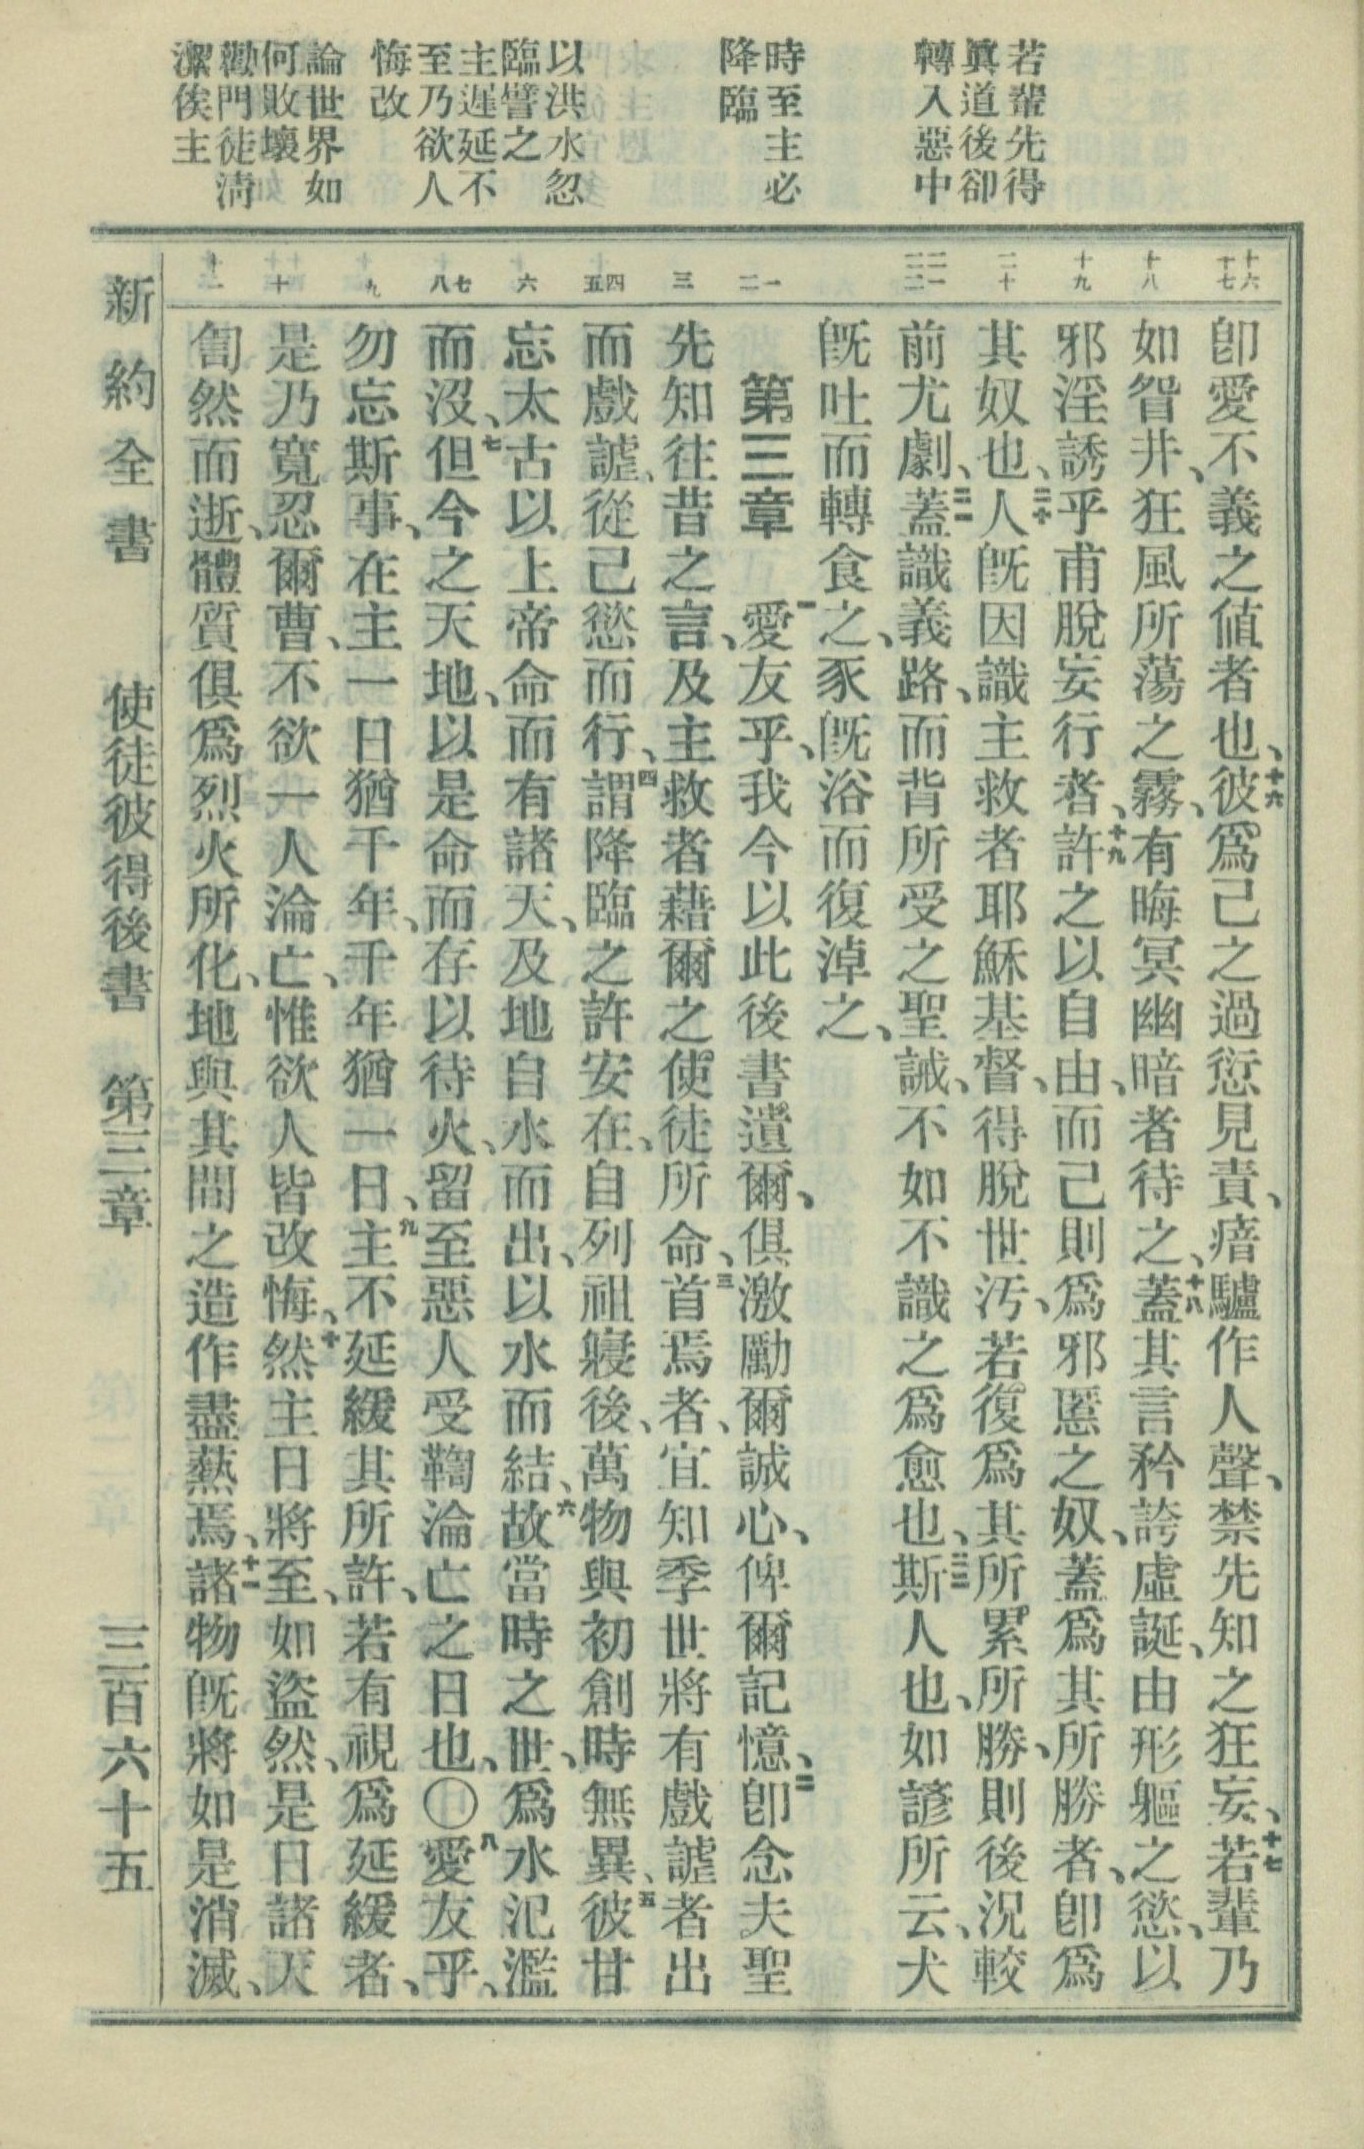 若輩先得
眞道後卻
轉入惡中
時至主必
降臨
以洪水忽
臨譬之
主遲延不
至乃欲人
悔改
論世界如
何敗壞
勸門徒淸
潔俟主
十六
十七
十八
十九
二十
二一
二二
一
二
三
四
五
六
七
八
九
十
十一
卽愛不義之値者也、十六彼爲己之過愆見責、瘖驢作人聲、禁先知之狂妄、十七若輩乃
如眢井、狂風所蕩之霧、有晦冥幽暗者待之、十八蓋其言矜誇虛誕、由形軀之慾、以
邪淫誘乎甫脫妄行者、十九許之以自由、而己則爲邪慝之奴、蓋爲其所勝者、卽爲
其奴也、二十人旣因識主救者耶穌基督、得脫世汚、若復爲其所累所勝、則後況較
前尤劇、二一蓋識義路、而背所受之聖誡、不如不識之爲愈也、二二斯人也、如諺所云、犬
旣吐而轉食之、豕旣浴而復淖之、
第三章 一愛友乎、我今以此後書遺爾、俱激勵爾誠心、俾爾記憶、二卽念夫聖
先知往昔之言、及主救者藉爾之使徒所命、三首焉者、宜知季世將有戲謔者出
而戲謔、從己慾而行、四謂降臨之許安在、自列祖寢後、萬物與初創時無異、五彼甘
忘太古以上帝命而有諸天、及地自水而出、以水而結、六故當時之世、爲水氾濫
而沒、七但今之天地、以是命而存以待火、留至惡人受鞫淪亡之日也、〇八愛友乎、
勿忘斯事、在主一日猶千年、千年猶一日、九主不延緩其所許、若有視爲延緩者、
是乃寬忍爾曹、不欲一人淪亡、惟欲人皆改悔、十然主日將至、如盜然、是日諸天
訇然而逝、體質俱爲烈火所化、地與其間之造作盡爇焉、十一諸物旣將如是消滅、
新約全書 使徒彼得後書 第三章 三百六十五